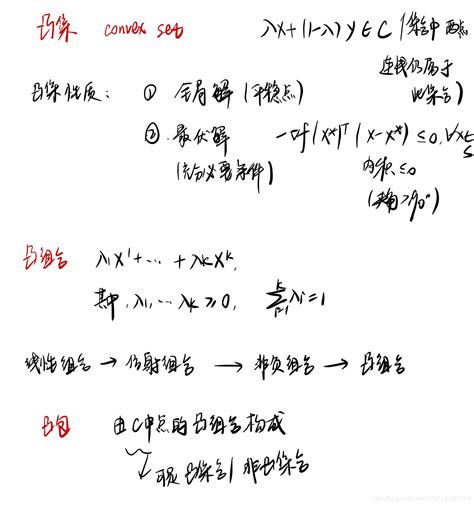 凸集 convex set λx+(1-λ)y∈C (集合中两点
连线仍属于
此集合)
凸集性质: ① 全局解 (平稳点)
② 最优解 -∇f(x*)ᵀ(x-x*)≤0, ∀x∈S
(充分必要条件) 内积≤0
(夹角>90°)
凸组合 λ₁x¹+…+λₖxᵏ,
其中,λ₁,…λₖ≥0, Σᵢ₌₁ᵏλᵢ=1
线性组合→仿射组合→非负组合→凸组合
凸包 由C中点的凸组合构成
可是凸集合/非凸集合